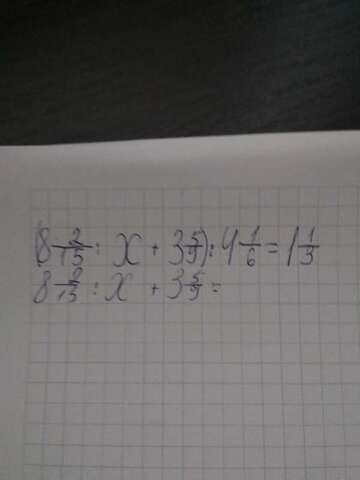 (8 2/15 : x + 3 5/9) : 4 1/6 = 1 1/3
8 2/15 : x + 3 5/9 =